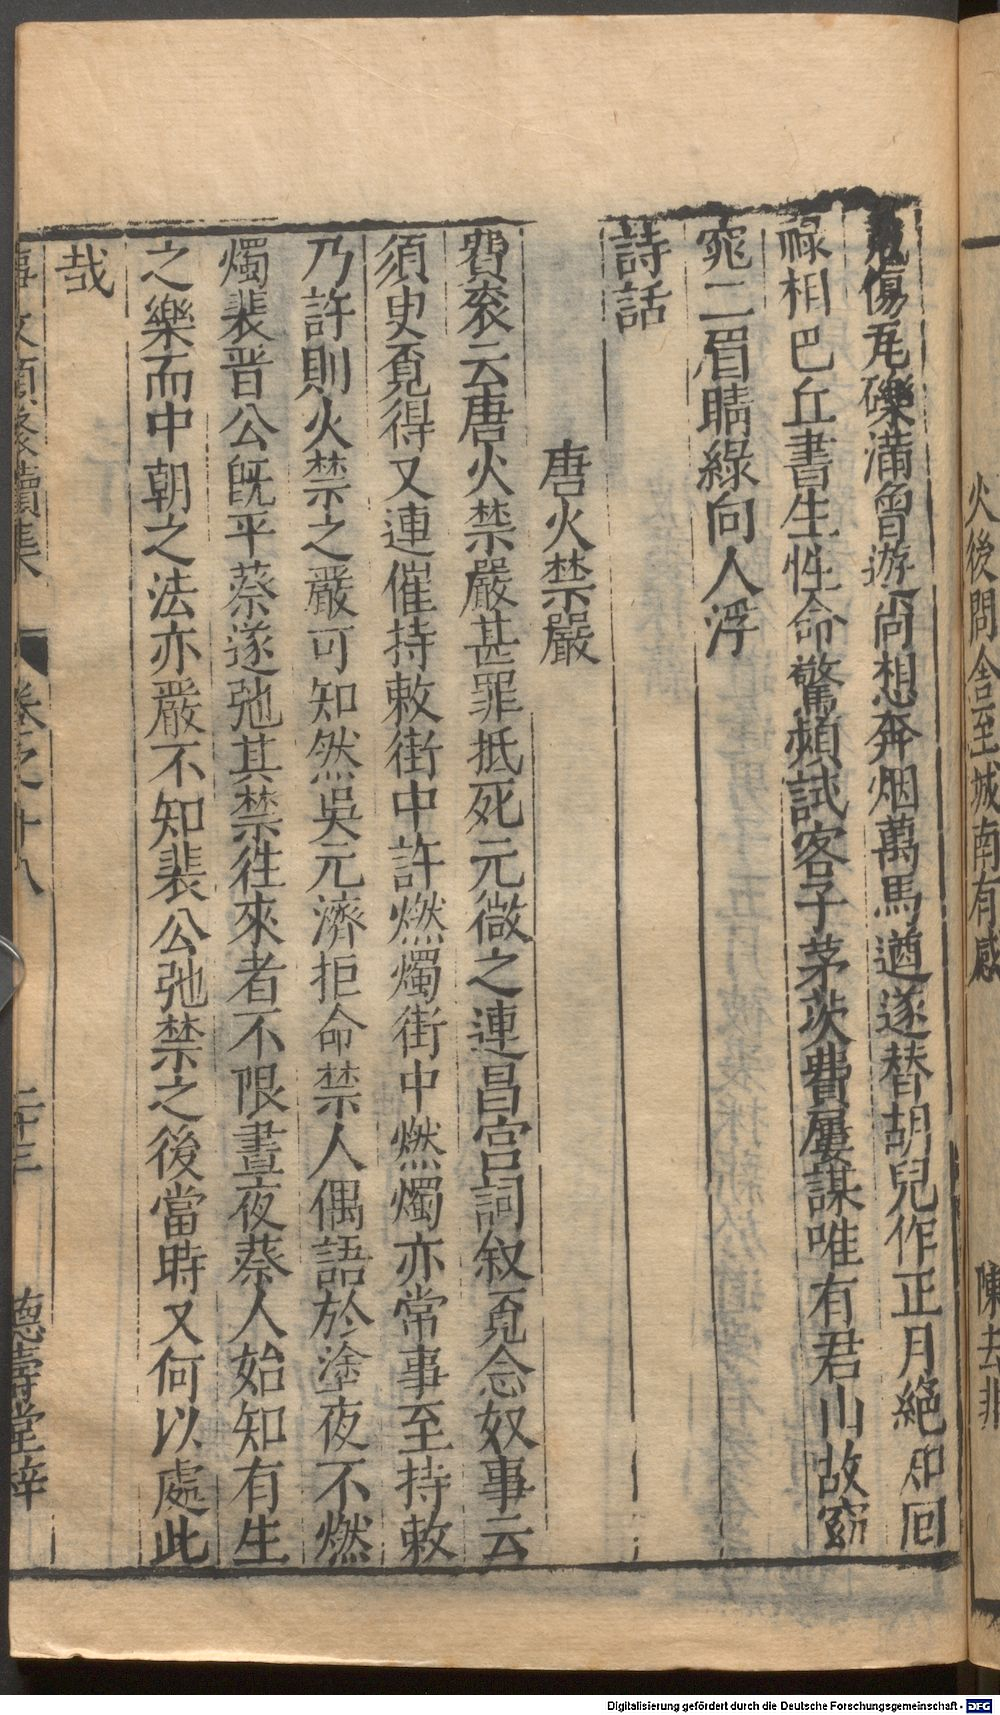 火後問舍至城南有感
陳去非
魂傷瓦礫滿曾遊尚想奔烟萬馬遒遂替胡兒作正月絕知回
祿相巴丘書生性命驚頻試客子茅茨費屢謀唯有君山故窈
窕二眉睛綠向人浮
詩話
唐火禁嚴
費袞云唐火禁嚴甚罪抵死元微之連昌宮詞叙覓念奴事云
須史覓得又連催持敕街中許燃燭街中燃燭亦常事至持敕
乃許則火禁之嚴可知然吳元濟拒命禁人偶語於塗夜不燃
燭裴晋公旣平蔡遂弛其禁往來者不限晝夜蔡人始知有生
之樂而中朝之法亦嚴不知裴公弛禁之後當時又何以處此
哉
事文類聚續集
卷之十八
二十三
德壽堂梓
Digitalisierung gefördert durch die Deutsche Forschungsgemeinschaft - DFG